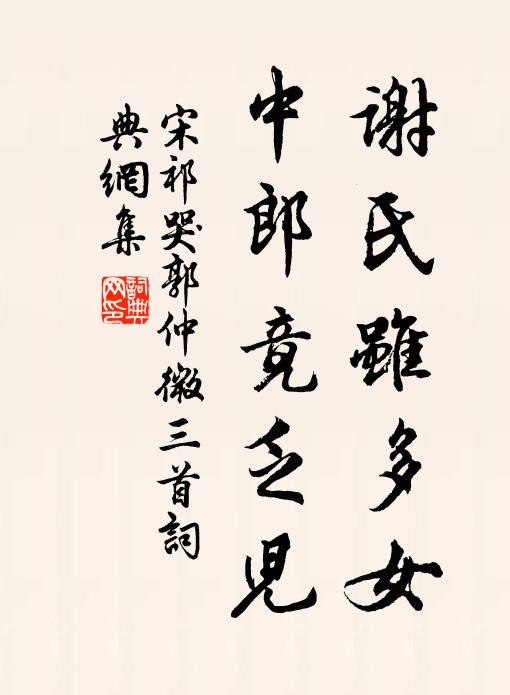 謝氏雖多女
中郎竟乏兒
宋祁哭郭仲微三首詞
典網集
詞典
网印